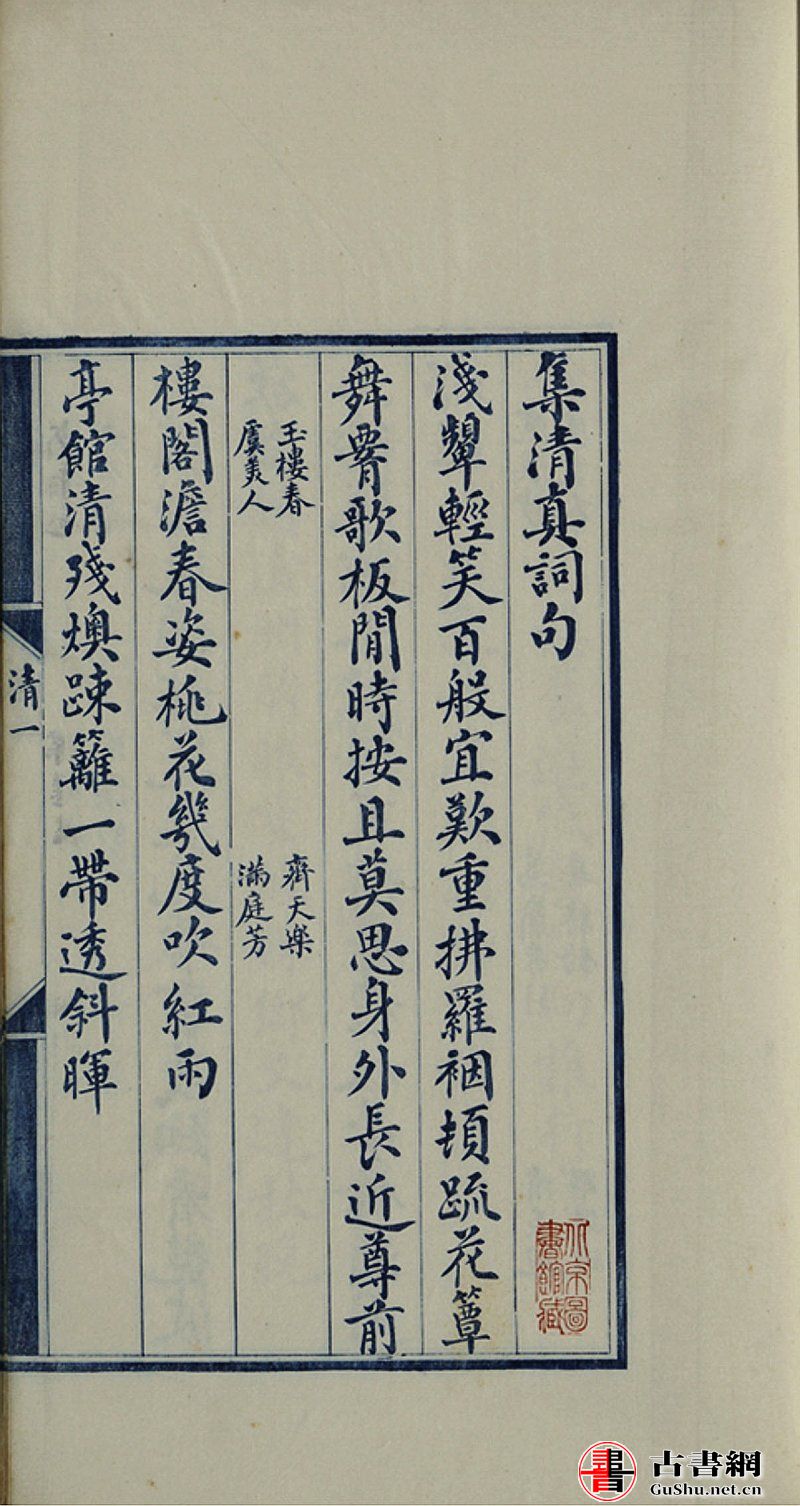 集清真詞句
淺顰輕笑百般宜歎重拂羅裀頓疏花簟
舞臀歌板閒時按且莫思身外長近尊前
玉樓春
虞美人
齊天樂
滿庭芳
樓閣澹春姿桃花幾度吹紅雨
亭館清殘燠踈籬一帶透斜暉
清一
北京圖書館藏
古書網
GuShu.net.cn